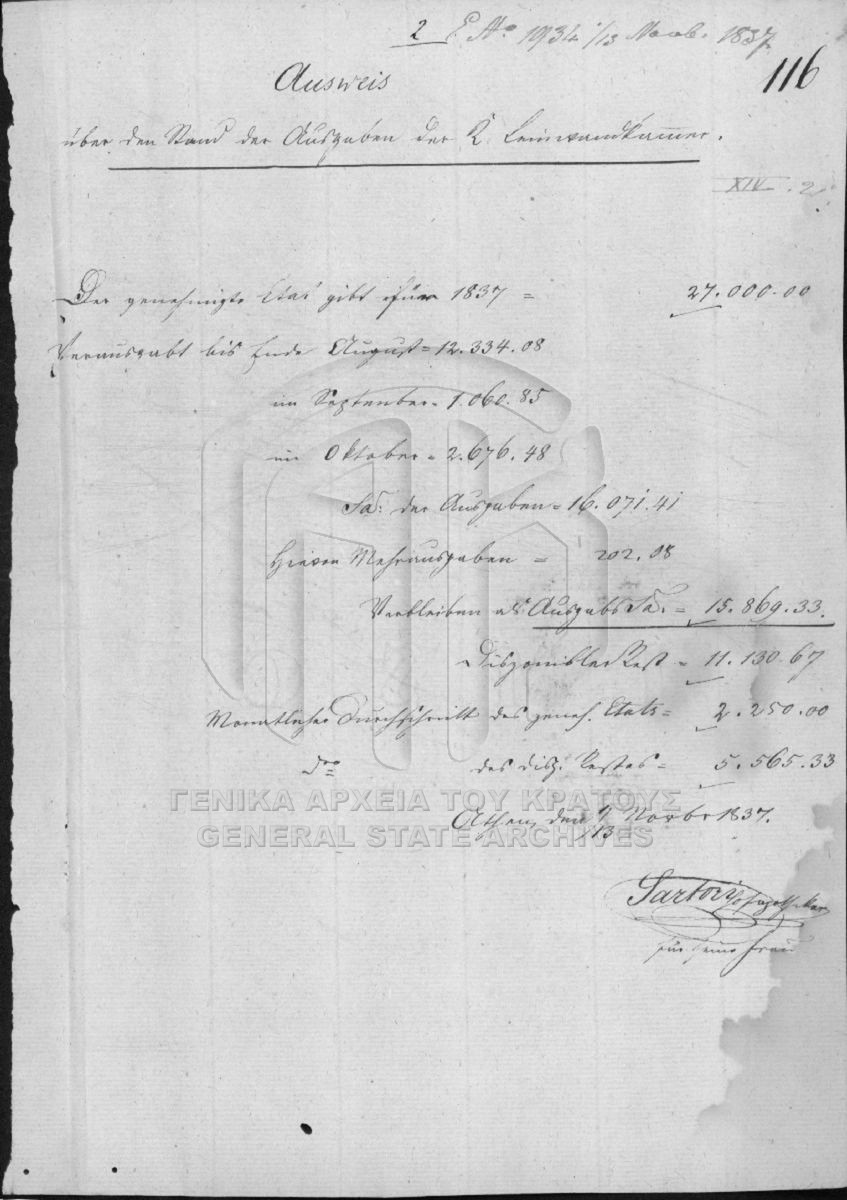 2 E No 1934 1/13 Novb. 1837
116
Ausweis
über den Stand der Ausgaben der K. Leinwandkammer.
XIV. 2
Der genehmigte Etat gibt für 1837 = 27.000.00
Verausgabt bis Ende August = 12.334.08
im September = 1.060.85
im Oktober = 2.676.48
Sa. der Ausgaben = 16.071.41
Hievon Mehrausgaben = 202.08
Verbleiben als Ausgabs Sa. = 15.869.33.
Disponibler Rest = 11.130.67
Monatlicher Durchschnitt des geneh. Etats = 2.250.00
dto des disp. Restes = 5.565.33
Athen, den 1/13 Novbr 1837.
Sartori Hofapotheker
für seine Frau
ΓΕΝΙΚΑ ΑΡΧΕΙΑ ΤΟΥ ΚΡΑΤΟΥΣ
GENERAL STATE ARCHIVES